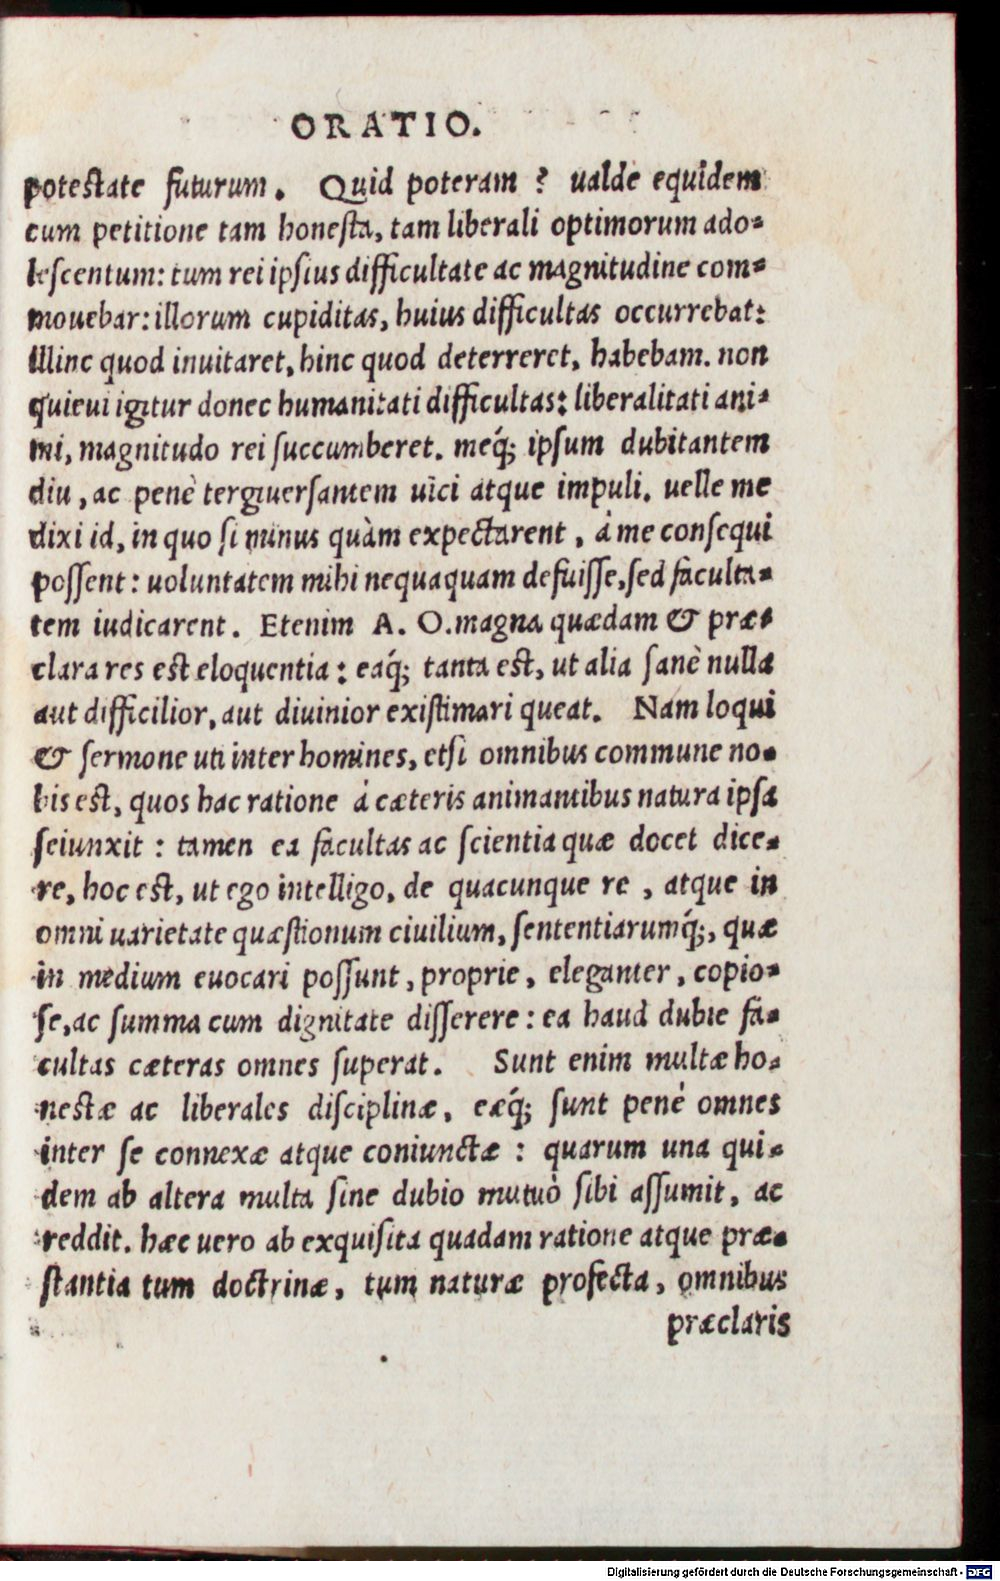 ORATIO.
potestate futurum. Quid poteram ? ualde equidem
cum petitione tam honesta, tam liberali optimorum ado-
lescentum: tum rei ipsius difficultate ac magnitudine com-
mouebar: illorum cupiditas, huius difficultas occurrebat:
illinc quod inuitaret, hinc quod deterreret, habebam. non
quieui igitur donec humanitati difficultas: liberalitati ani-
mi, magnitudo rei succumberet. meq́; ipsum dubitantem
diu, ac penè tergiuersantem uici atque impuli. uelle me
dixi id, in quo si minus quàm expectarent, à me consequi
possent: uoluntatem mihi nequaquam defuisse, sed faculta-
tem iudicarent. Etenim A. O. magna quædam & præ-
clara res est eloquentia: eaq́; tanta est, ut alia sanè nulla
aut difficilior, aut diuinior existimari queat. Nam loqui
& sermone uti inter homines, etsi omnibus commune no-
bis est, quos hac ratione á cæteris animantibus natura ipsa
seiunxit : tamen ea facultas ac scientia quæ docet dice-
re, hoc est, ut ego intelligo, de quacunque re, atque in
omni uarietate quæstionum ciuilium, sententiarumq́;, quæ
in medium euocari possunt, proprie, eleganter, copio-
se, ac summa cum dignitate disserere: ea haud dubie fa-
cultas cæteras omnes superat. Sunt enim multæ ho-
nestæ ac liberales disciplinæ, eæq́; sunt penè omnes
inter se connexæ atque coniunctæ : quarum una qui-
dem ab altera multa sine dubio mutuò sibi assumit, ac
reddit. hæc uero ab exquisita quadam ratione atque præ-
stantia tum doctrinæ, tum naturæ profecta, omnibus
præclaris
Digitalisierung gefördert durch die Deutsche Forschungsgemeinschaft - DFG